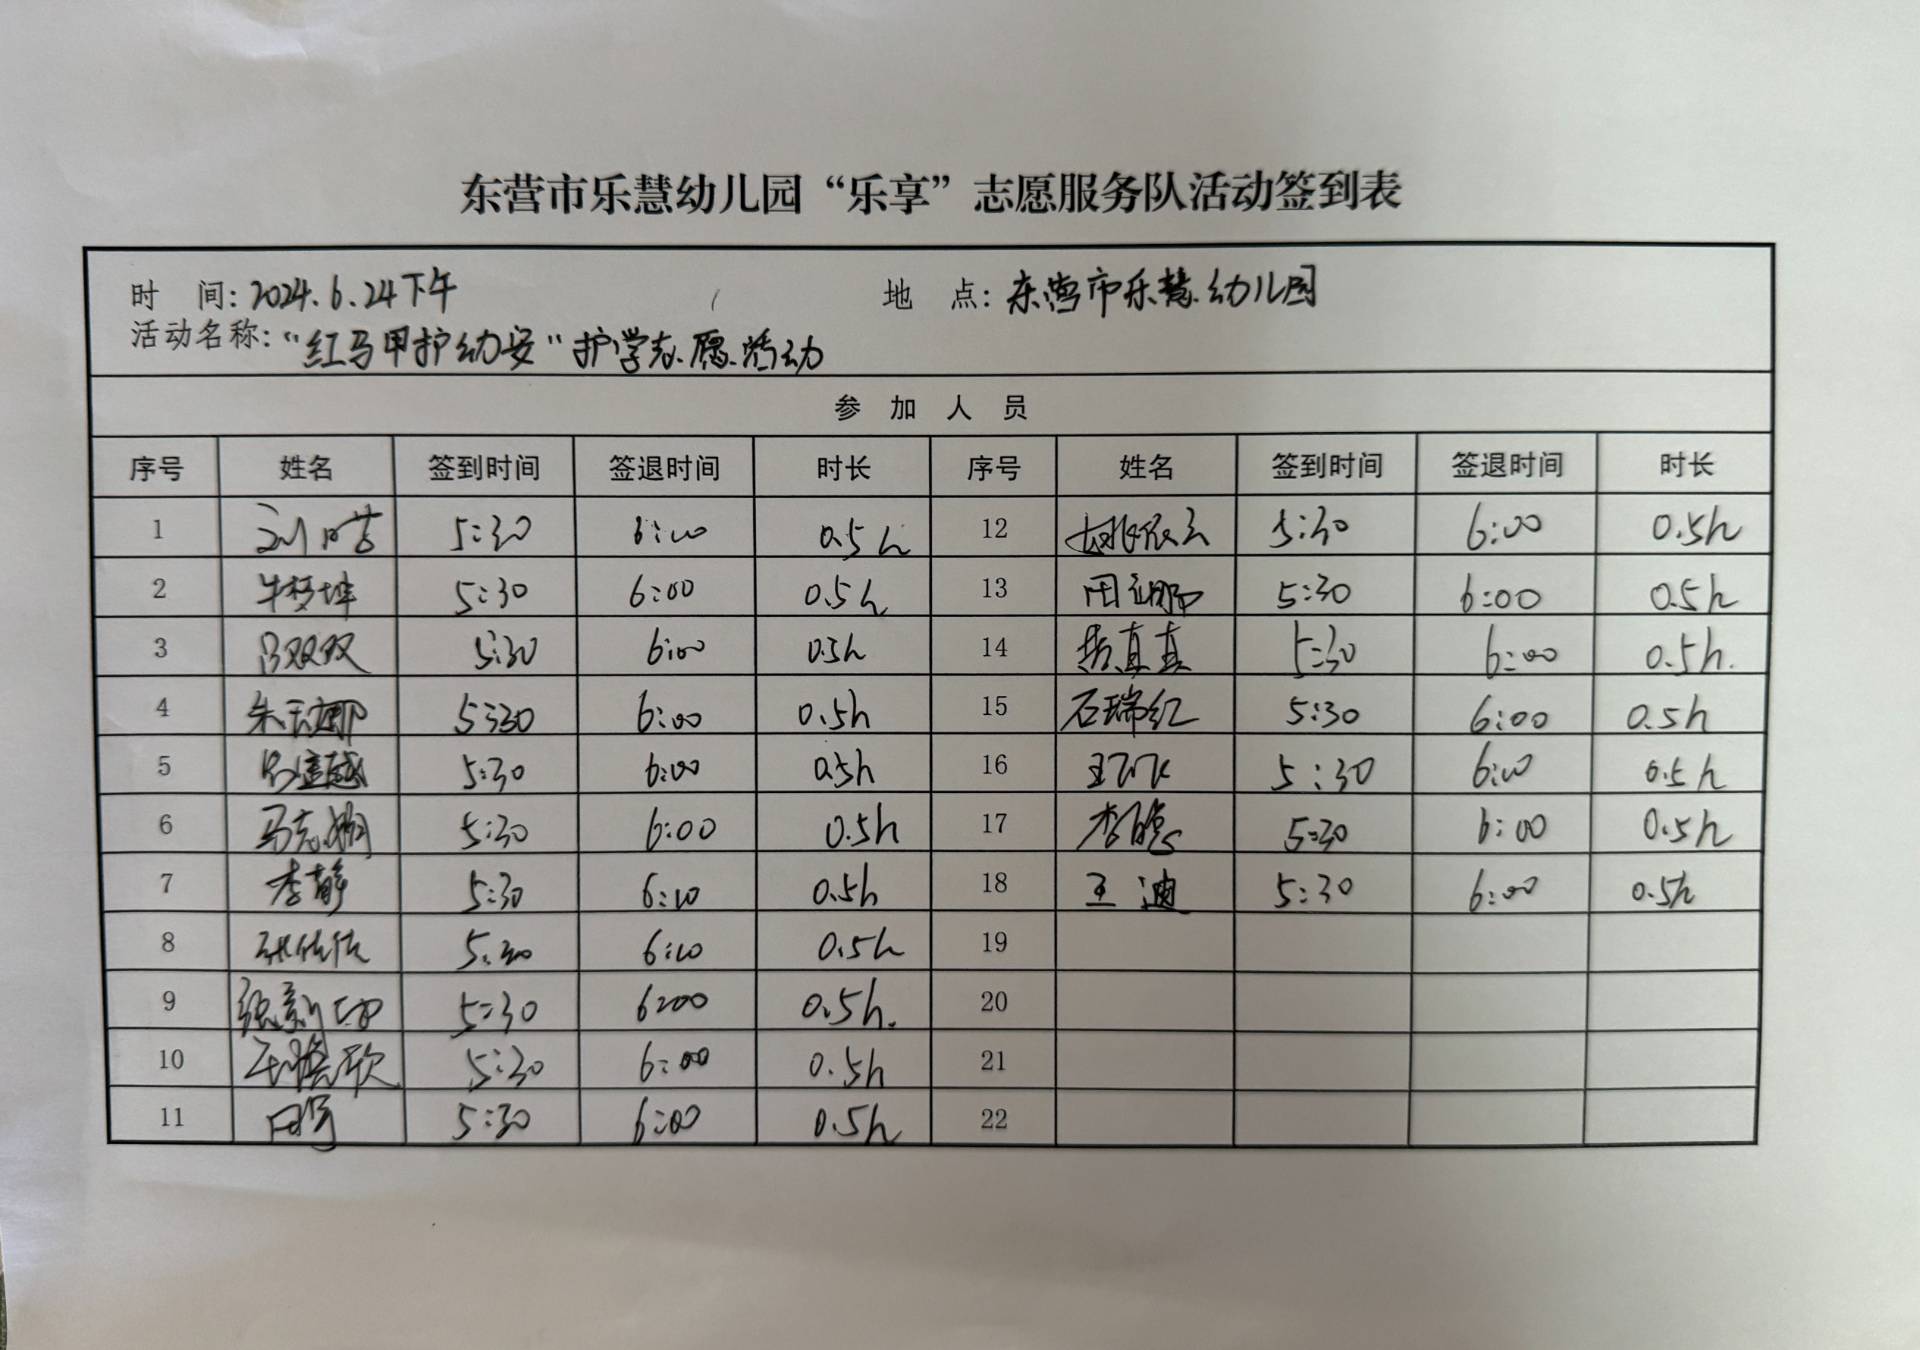 东营市乐慧幼儿园“乐享”志愿服务队活动签到表
时 间：2024.6.24下午 地 点：东营市乐慧幼儿园
活动名称：“红马甲护幼安”护学志愿活动
参 加 人 员
序号 姓名 签到时间 签退时间 时长 序号 姓名 签到时间 签退时间 时长
1 5:30 6:00 0.5h 12 姚依云 5:30 6:00 0.5h
2 牛梦坤 5:30 6:00 0.5h 13 5:30 6:00 0.5h
3 吕双双 5:30 6:00 0.5h 14 真真 5:30 6:00 0.5h.
4 朱 娜 5:30 6:00 0.5h 15 石瑞红 5:30 6:00 0.5h
5 5:30 6:00 0.5h 16 5:30 6:00 0.5h
6 马志娟 5:30 6:00 0.5h 17 李 5:30 6:00 0.5h
7 李静 5:30 6:00 0.5h 18 王迪 5:30 6:00 0.5h
8 张佳佳 5:30 6:00 0.5h 19
9 张新 5:30 6:00 0.5h. 20
10 欣 5:30 6:00 0.5h 21
11 5:30 6:00 0.5h 22